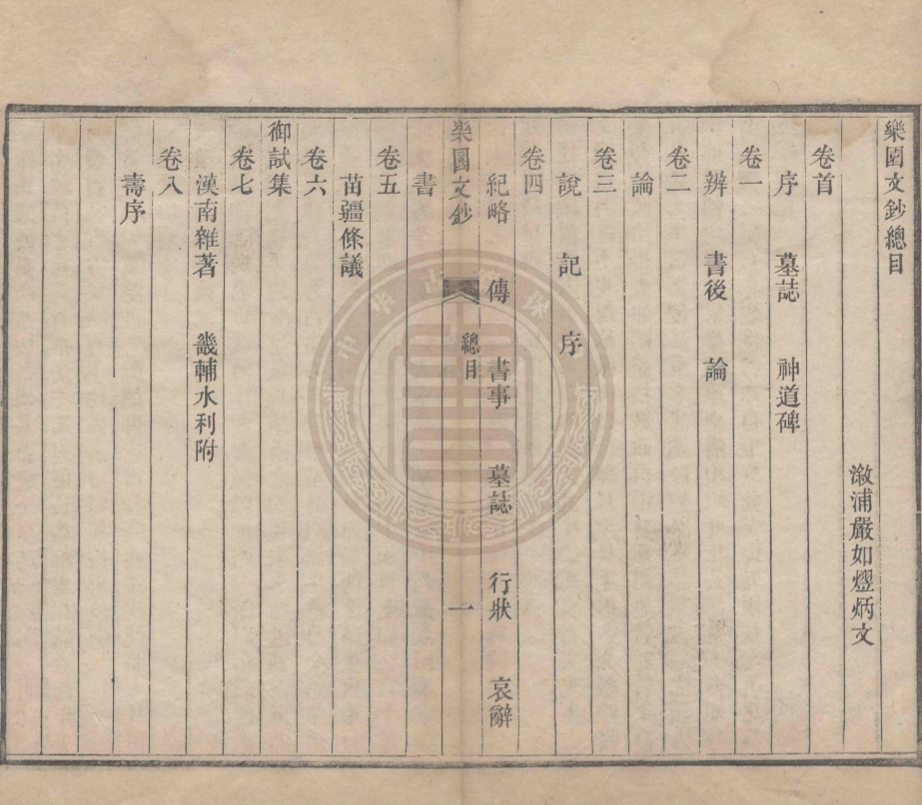 樂園文鈔總目
漵浦嚴如熤炳文
卷首
序 墓誌 神道碑
卷一
辨 書後 論
卷二
論
卷三
說 記 序
卷四
紀略 傳 書事 墓誌 行狀 哀辭
樂園文鈔 總目 一
書
卷五
苗疆條議
卷六
御試集
卷七
漢南雜著 畿輔水利附
卷八
壽序